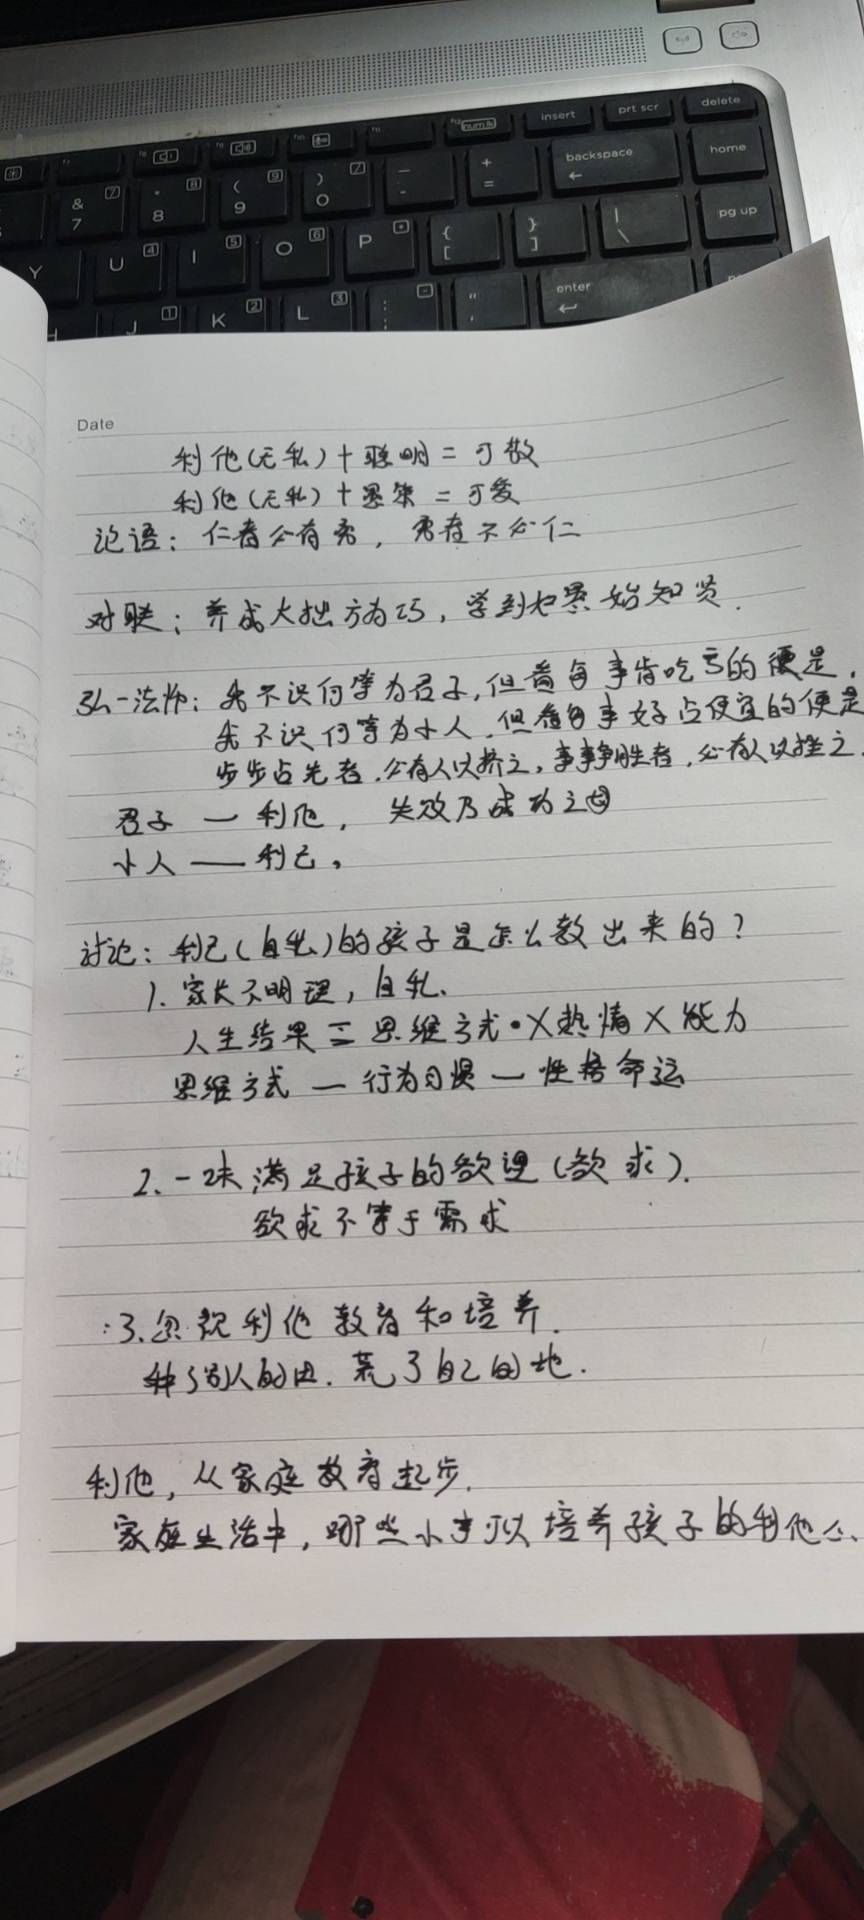 insert
prt scr
delete
num lk
backspace
home
& 7
* 8
( 9
) 0
- 
+ =
pg up
Y U I O P { [ } ] | \
enter
J K L : ; " '
Date
利他(无私)+聪明=可敬
利他(无私)+愚笨=可爱
论语:仁者必有勇,勇者不必仁
对联:养成大拙方为巧,学到如愚始知贤.
弘一法师:我不识何等为君子,但看每事肯吃亏的便是,
我不识何等为小人,但看每事好占便宜的便是
步步占先者,必有人以挤之,事事争胜者,必有人以挫之,
君子一利他, 失败乃成功之母
小人——利己。
讨论:利己(自私)的孩子是怎么教出来的?
1. 家长不明理,自私.
人生结果=思维方式·X热情X能力
思维方式一行为习惯一性格命运
2. 一味满足孩子的欲望(欲求).
欲求不等于需求
:3. 忽视利他教育和培养.
种了别人的田.荒了自己的地.
利他,从家庭教育起步.
家庭生活中,哪些小事可以培养孩子的利他心、